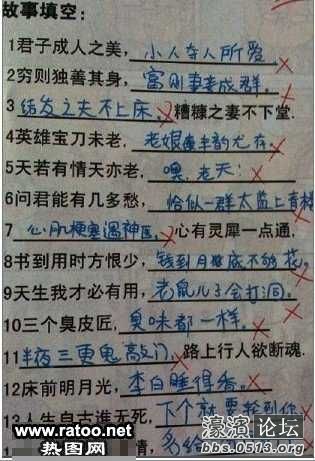 故事填空：
1君子成人之美，小人夺人所爱。
2穷则独善其身，富则妻妾成群。
3结发之夫不上床，糟糠之妻不下堂.
4英雄宝刀未老，老娘风韵尤存。
5天若有情天亦老，噢，老天！
6问君能有几多愁，恰似一群太监上青楼
7心肌梗塞遇神医，心有灵犀一点通，
8书到用时方恨少，钱到月底不够花。
9天生我才必有用，老鼠儿子会打洞。
10三个臭皮匠，臭味都一样。
11半夜三更鬼敲门，路上行人欲断魂.
12床前明月光，李白睡得香。
13人生自古谁无死，下个就要轮到你
情，多给
www.ratoo.net
热图网
濠滨论坛
bbs.0513.org